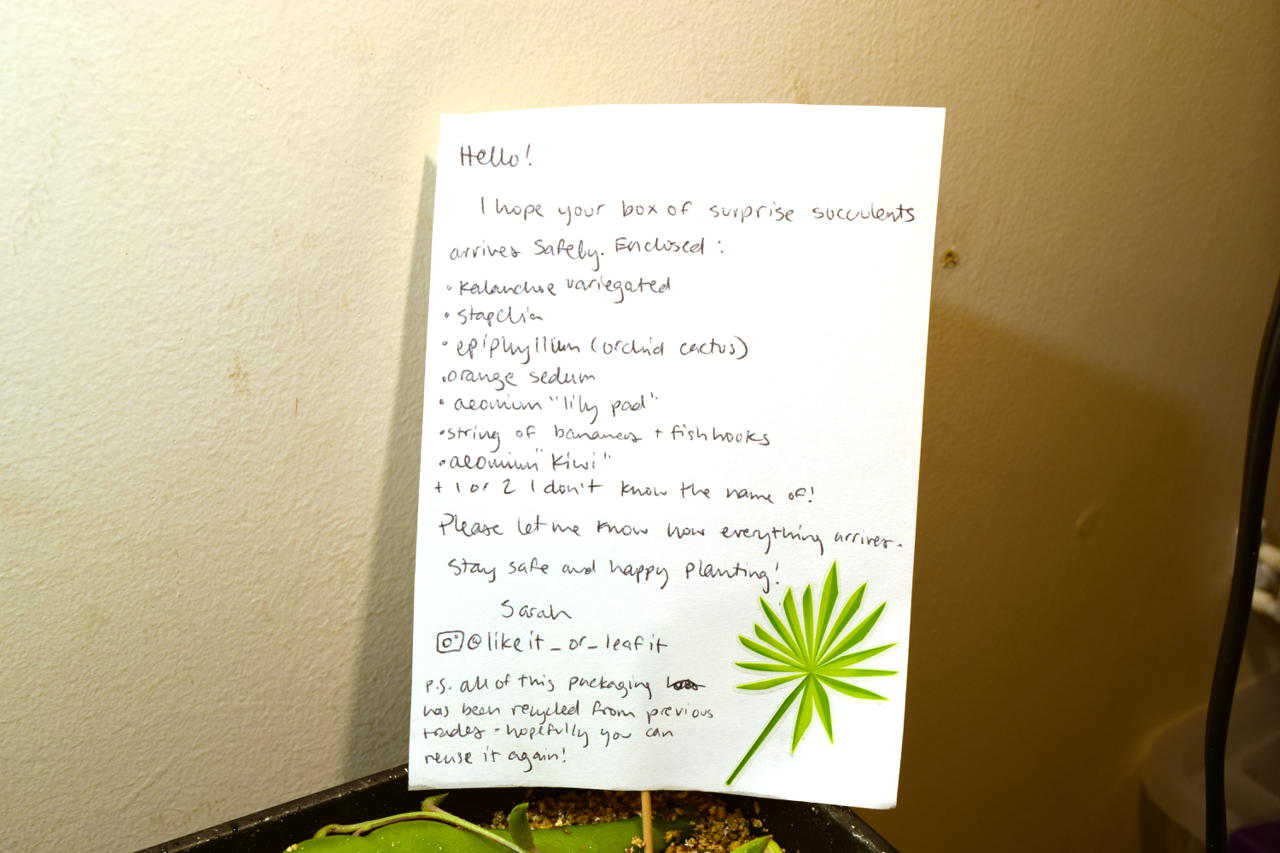 Hello!
I hope your box of surprise succulents
arrives safely. Enclosed:
• Kalanchoe variegated
• stapelia
• epiphyllium (orchid cactus)
• orange sedum
• aeonium "lily pad"
• string of bananas + fishhooks
• aeonium "Kiwi"
+ 1 or 2 I don't know the name of!
Please let me know how everything arrives.
Stay safe and happy planting!
Sarah
@likeit_or_leafit
P.S. all of this packaging
has been recycled from previous
trades - hopefully you can
reuse it again!